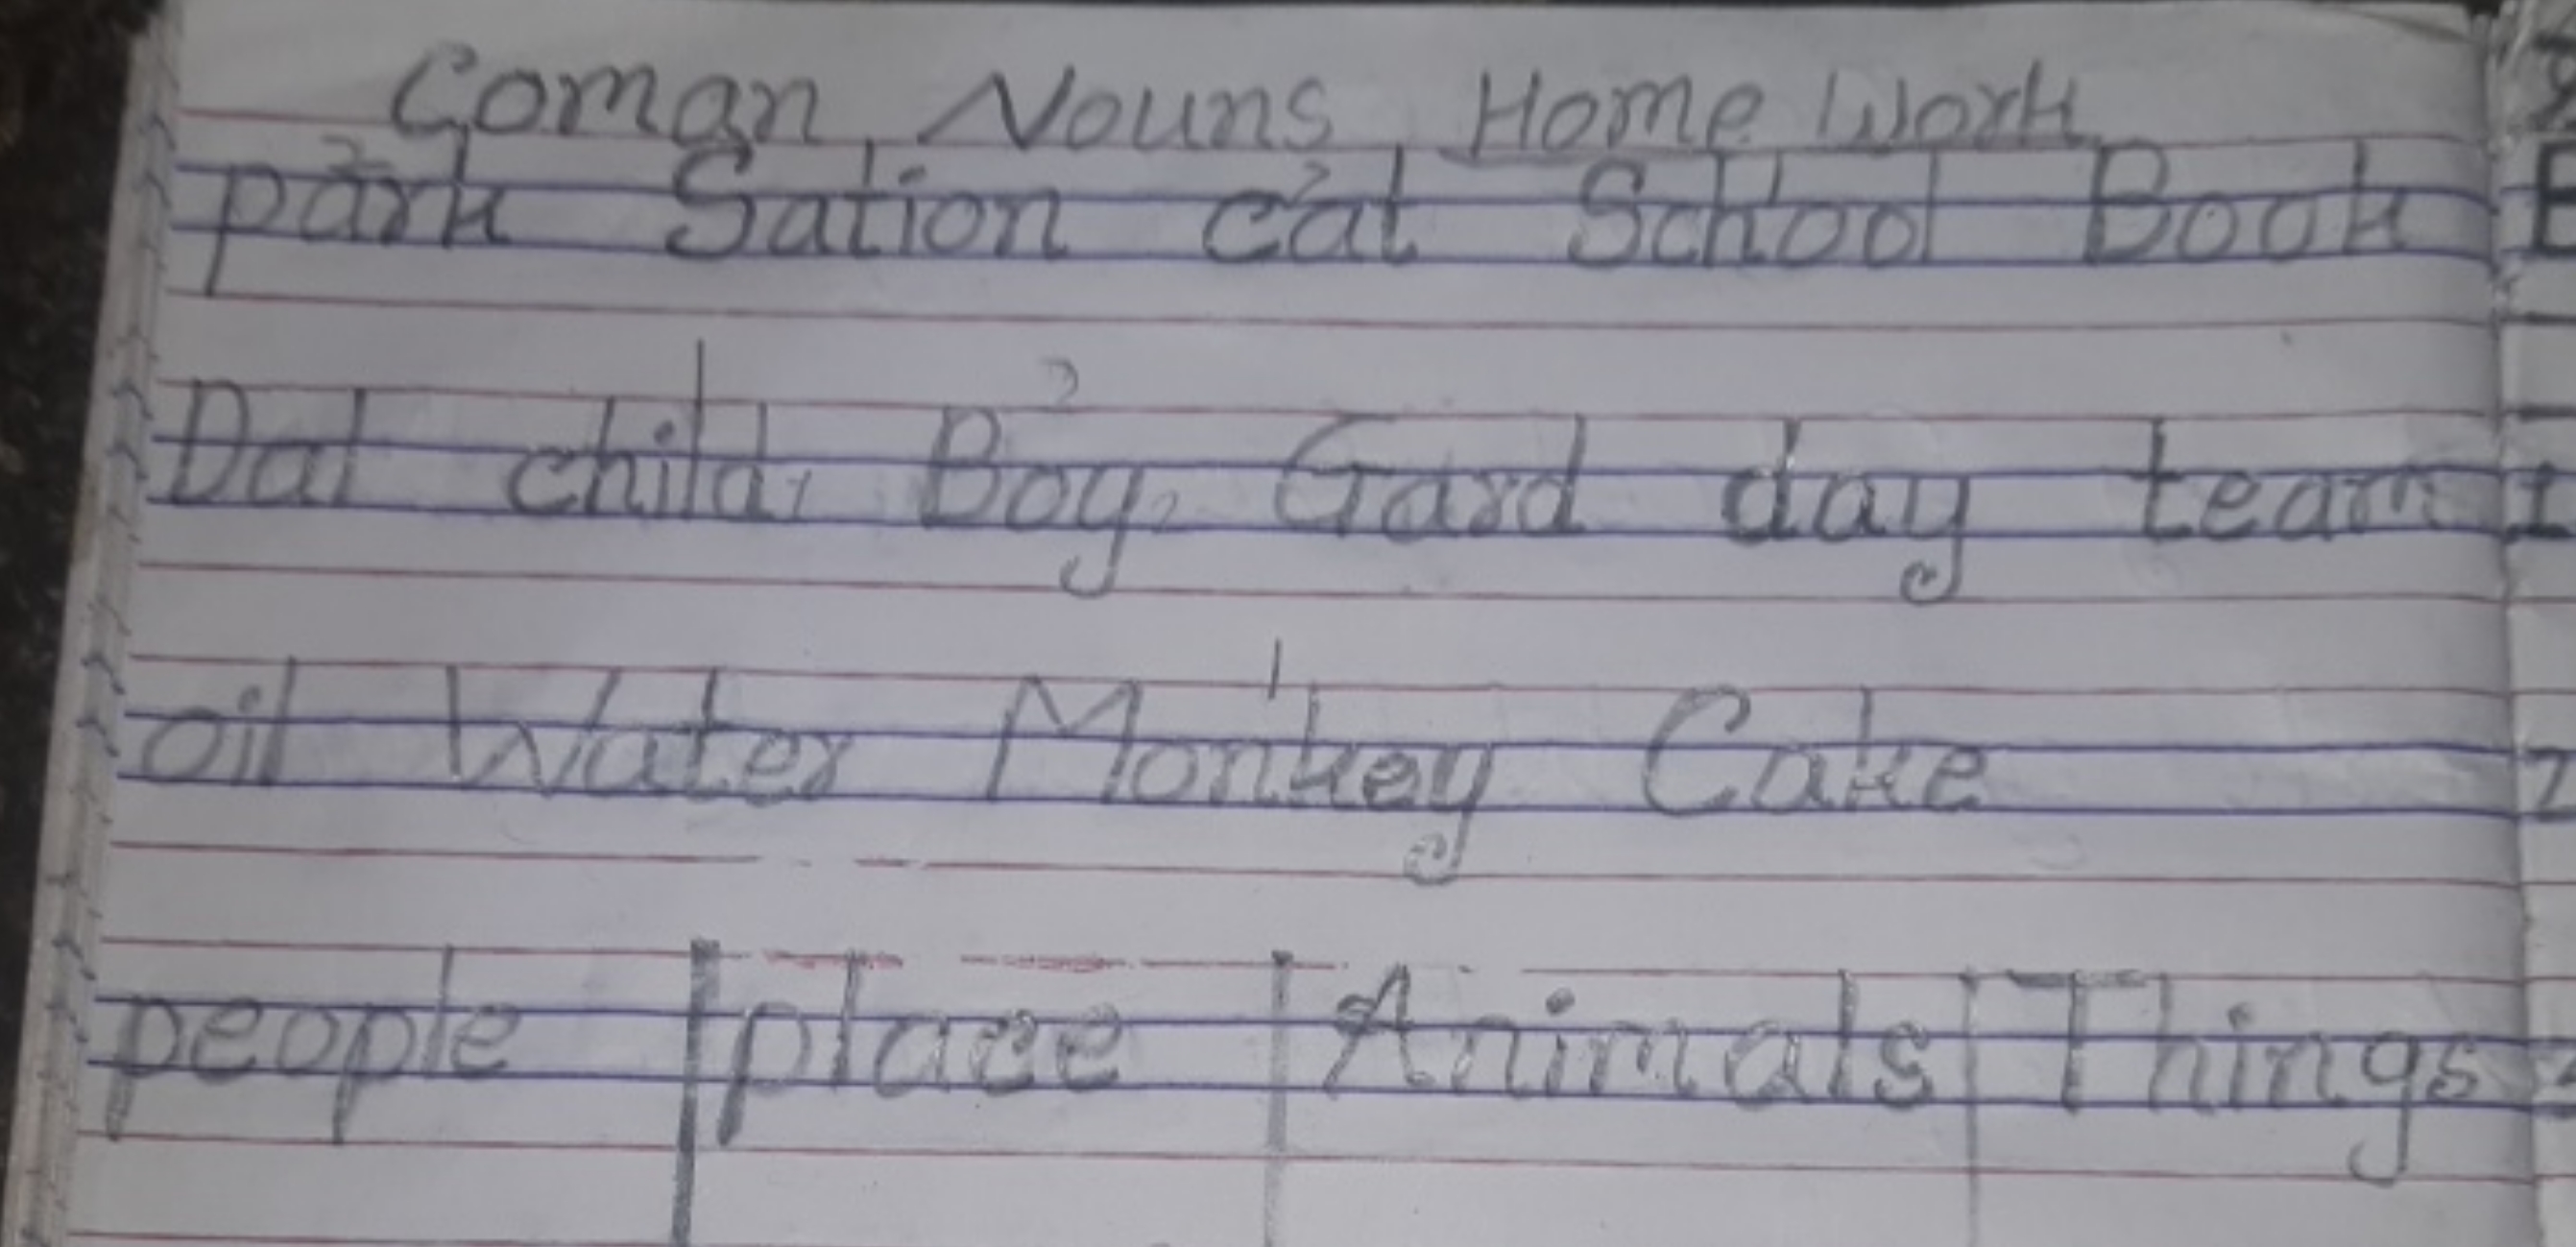 Coman Nouns Home Work
park Sation cat School Book
Dal child Boy Gard day team
oil Water Monkey Cake
people place Animals Things